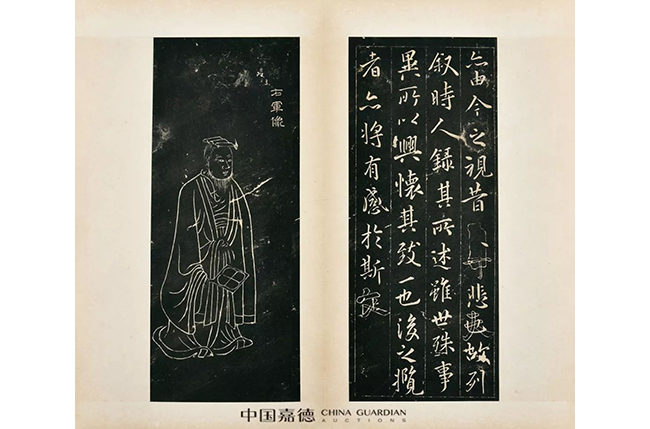 亦由今之視昔悲夫故列
叙時人錄其所述雖世殊事
異所以興懷其致一也後之攬
者亦將有感於斯文
右軍像
中国嘉德 CHINA GUARDIAN
AUCTIONS